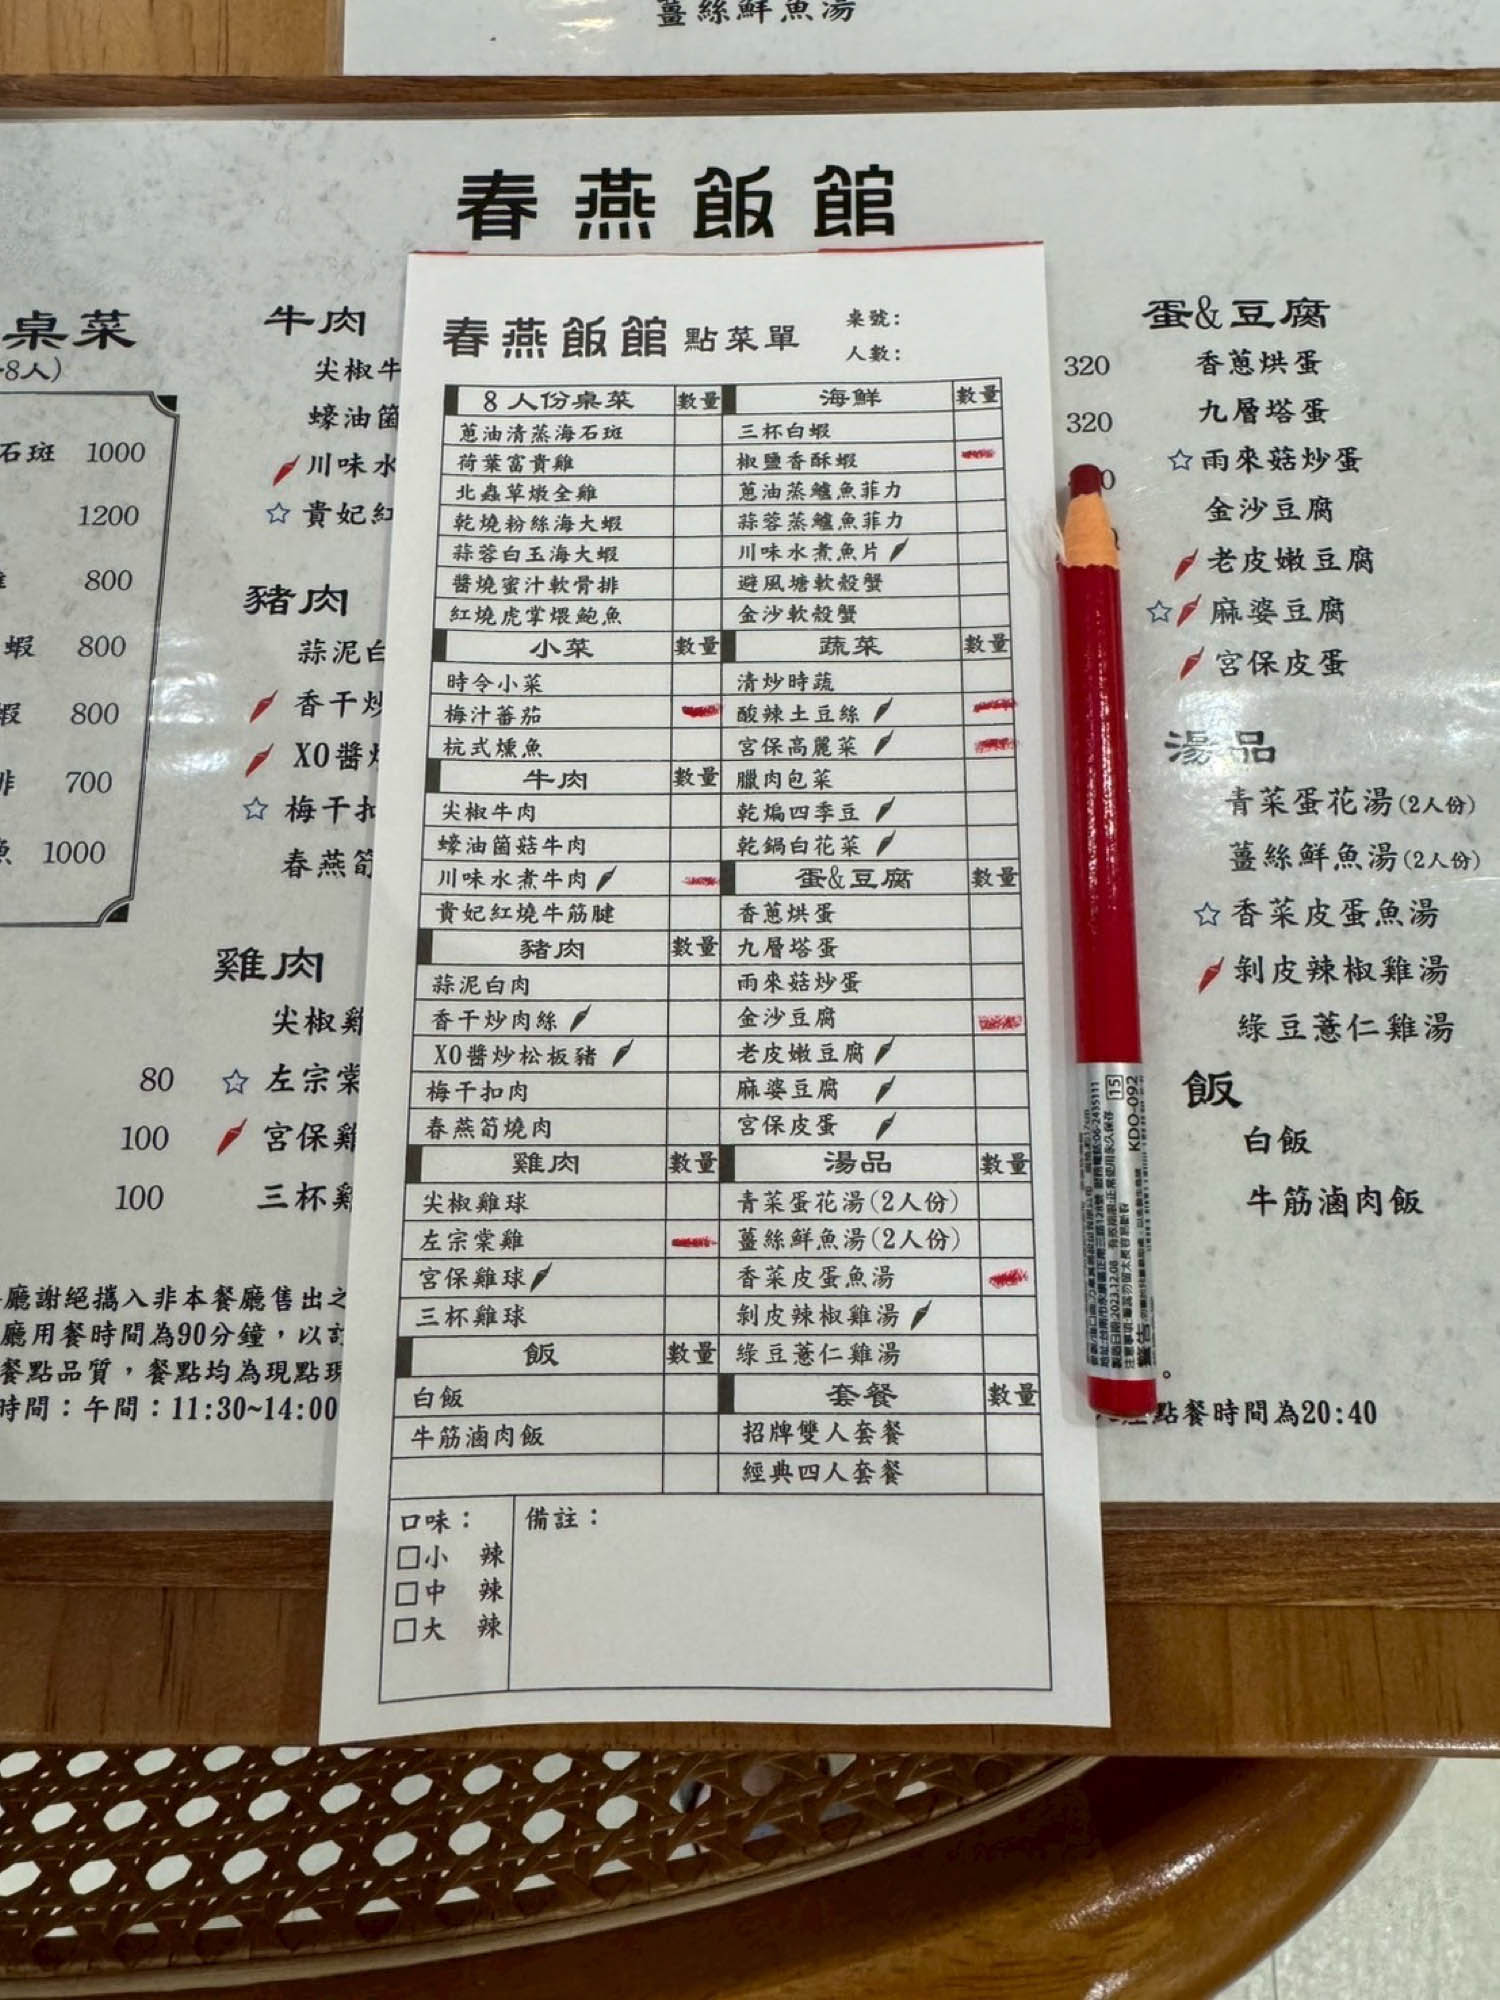 薑絲鮮魚湯
春燕飯館
桌菜
8人)
石斑 1000
1200
800
蝦 800
蝦 800
排 700
魚 1000
80
100
100
牛肉
尖椒牛
蠔油菌
川味水
☆貴妃紅
豬肉
蒜泥白
香干炒
XO醬炒
☆梅干扣
春燕筍
雞肉
尖椒雞
☆左宗棠
宮保雞
三杯雞
廳謝絕攜入非本餐廳售出之
廳用餐時間為90分鐘，以訂
餐點品質，餐點均為現點現
時間：午間：11:30~14:00
春燕飯館 點菜單
桌號：
人數：
8人份桌菜 數量 海鮮 數量
蔥油清蒸海石斑 三杯白蝦
荷葉富貴雞 椒鹽香酥蝦
北蟲草燉全雞 蔥油蒸鱸魚菲力
乾燒粉絲海大蝦 蒜蓉蒸鱸魚菲力
蒜蓉白玉海大蝦 川味水煮魚片
醬燒蜜汁軟骨排 避風塘軟殼蟹
紅燒虎掌煨鮑魚 金沙軟殼蟹
小菜 數量 蔬菜 數量
時令小菜 清炒時蔬
梅汁蕃茄 酸辣土豆絲
杭式燻魚 宮保高麗菜
牛肉 數量 臘肉包菜
尖椒牛肉 乾煸四季豆
蠔油菌菇牛肉 乾鍋白花菜
川味水煮牛肉 蛋&豆腐 數量
貴妃紅燒牛筋腱 香蔥烘蛋
豬肉 數量 九層塔蛋
蒜泥白肉 雨來菇炒蛋
香干炒肉絲 金沙豆腐
XO醬炒松板豬 老皮嫩豆腐
梅干扣肉 麻婆豆腐
春燕筍燒肉 宮保皮蛋
雞肉 數量 湯品 數量
尖椒雞球 青菜蛋花湯(2人份)
左宗棠雞 薑絲鮮魚湯(2人份)
宮保雞球 香菜皮蛋魚湯
三杯雞球 剝皮辣椒雞湯
飯 數量 綠豆薏仁雞湯
白飯 套餐 數量
牛筋滷肉飯 招牌雙人套餐
經典四人套餐
口味： 備註：
□小 辣
□中 辣
□大 辣
320
320
0
蛋&豆腐
香蔥烘蛋
九層塔蛋
☆雨來菇炒蛋
金沙豆腐
老皮嫩豆腐
☆麻婆豆腐
宮保皮蛋
湯品
青菜蛋花湯(2人份)
薑絲鮮魚湯(2人份)
☆香菜皮蛋魚湯
剝皮辣椒雞湯
綠豆薏仁雞湯
飯
白飯
牛筋滷肉飯
。
點餐時間為20:40
15 KDO-092